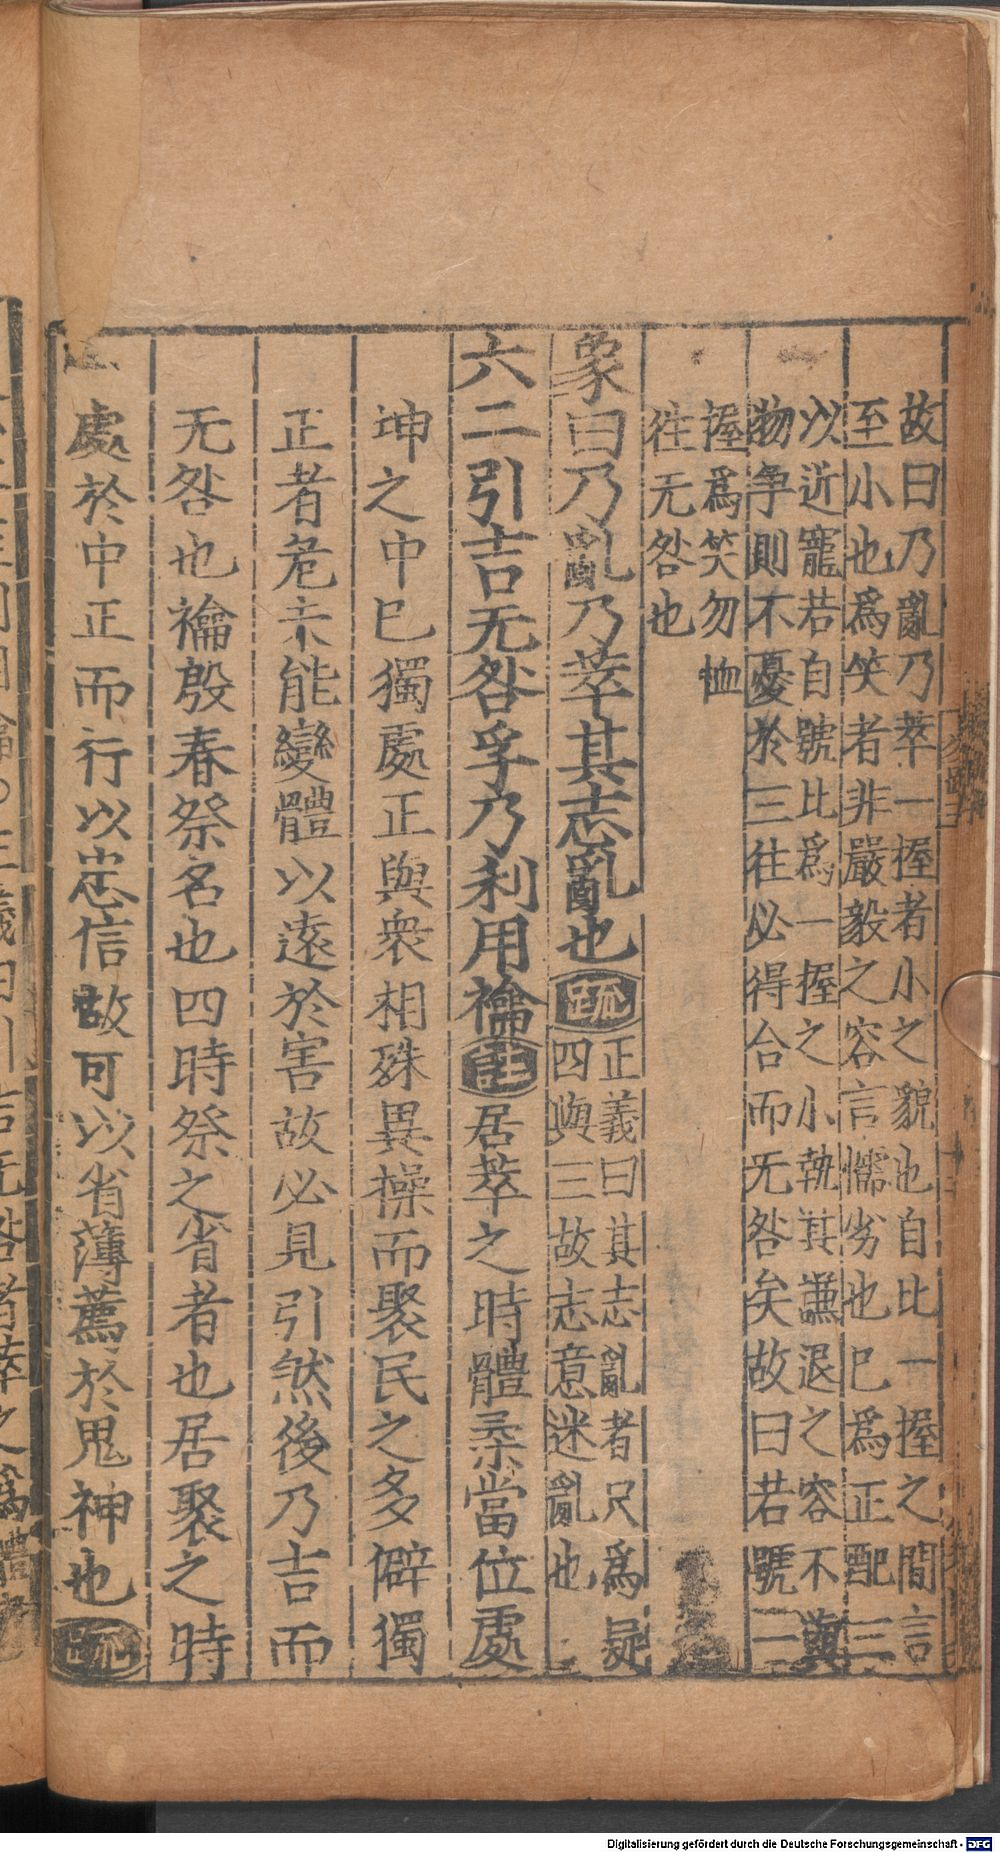 故曰乃亂乃萃一握者小之貌也自比一握之間言
至小也爲笑者非嚴毅之容言懦劣也巳爲正配三
以近寵若自號比爲一握之小執其謙退之容不與
物争則不憂於三往必得合而无咎矣故曰若號一
握爲笑勿恤
往无咎也
象曰乃亂乃萃其志亂也疏正義曰其志亂者只爲疑
四與三故志意迷亂也
六二引吉无咎孚乃利用禴註居萃之時體柔當位處
坤之中巳獨處正與衆相殊異操而聚民之多僻獨
正者危未能變體以遠於害故必見引然後乃吉而
无咎也禴殷春祭名也四時祭之省者也居聚之時
處於中正而行以忠信故可以省薄薦於鬼神也疏
Digitalisierung gefördert durch die Deutsche Forschungsgemeinschaft - DFG